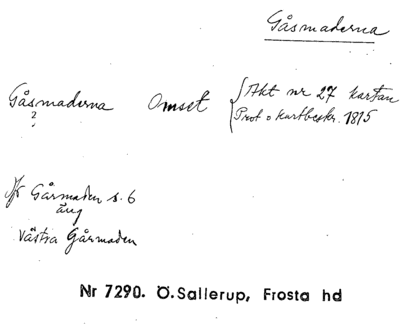 Gåsmaderna
Gåsmaderna Omset { Akt nr 27 kartan
? Prot o kartbeskr. 1815
Jfr Gårmaden s. 6
äng
Västra Gårmaden
Nr 7290. Ö.Sallerup, Frosta hd